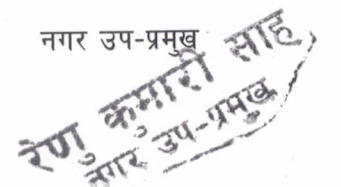 नगर उप-प्रमुख
रेणु कुमारी साह
नगर उप-प्रमुख